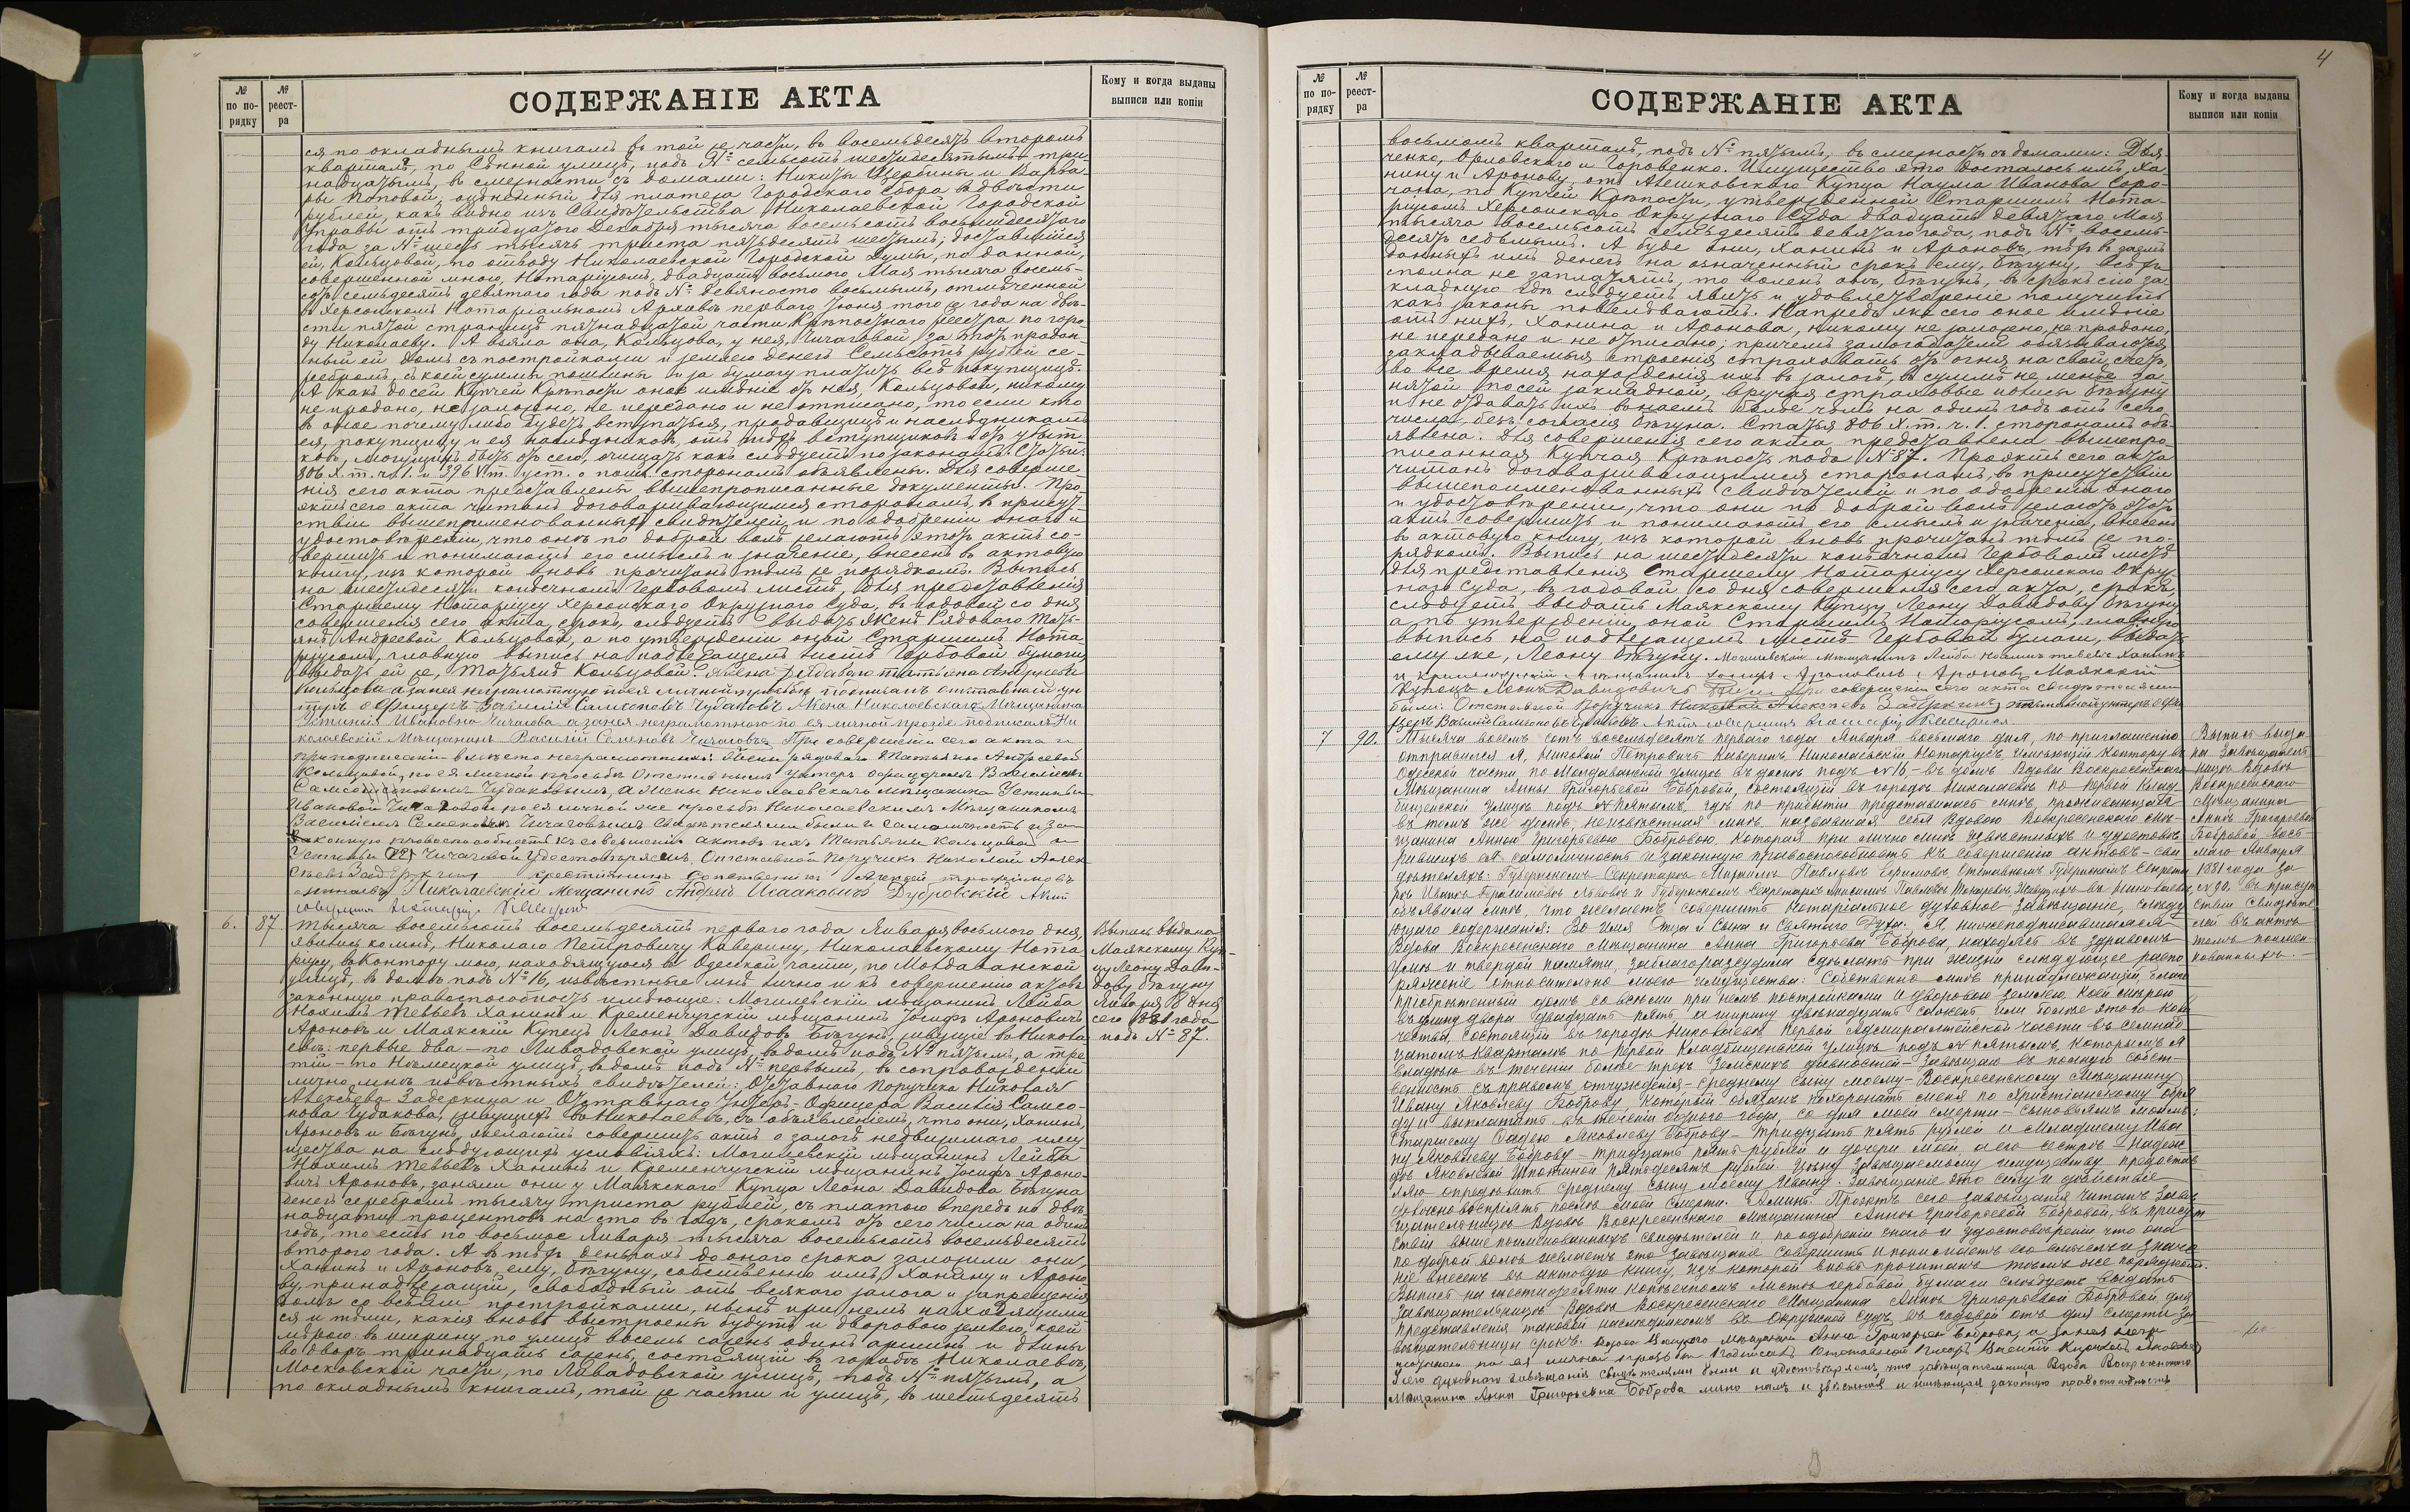 4
№ по порядку
№ реестра
СОДЕРЖАНІЕ АКТА
Кому и когда выданы выписи или копіи
ся по окладнымъ книгамъ въ той же части, въ восемьдесятъ второмъ
кварталѣ, по Сѣнной улицѣ, подъ № семьсотъ шестьдесятымъ три-
надцатымъ, въ смежности съ домами: Никиты Щербины и Варва-
ры Поповой, оцѣненный для платежа Городского сбора въ двѣсти
рублей, какъ видно изъ Свидѣтельства Николаевской Городской
Управы отъ тридцатаго Декабря тысяча восемьсотъ восьмидесятаго
года за № шесть тысячъ триста пятьдесятъ шестымъ; доставшійся
ей, Кольцовой, по отводу Николаевской Городской Думы, по данной,
совершенной мною, Нотаріусомъ, двадцать восьмого Мая тысяча восемь-
сотъ семьдесятъ девятаго года подъ № девяносто восьмымъ, отмѣченной
въ Херсонскомъ Нотаріальномъ Архивѣ перваго Іюня того же года на двѣ-
сти пятой страницѣ пятнадцатой части Крѣпостнаго реестра по горо-
ду Николаеву. А взяла она, Кольцова, у нея, Чичаговой, за этотъ продан-
ный ей домъ съ постройками и землею денегъ Семьсотъ рублей се-
ребромъ, съ коей суммы пошлины и за бумагу платить все покупщицѣ.
А какъ до сей Купчей Крѣпости оное имѣніе отъ нея, Кольцовой, никому
не продано, не заложено, не передано и не отписано, то если кто
въ оное почему либо будетъ вступаться, продавщицѣ и наслѣдникамъ
ея, покупщицу и ея наслѣдниковъ, отъ тѣхъ вступщиковъ и отъ убыт-
ковъ, могущихъ быть отъ сего, очищать какъ слѣдуетъ по законамъ. Статьи:
806 X. т. ч. 1. и 396 V т. уст. о пошл. сторонамъ объявлены. Для соверше
нія сего акта представлены вышепрописанные документы. Про
эктъ сего акта читанъ договаривающимся сторонамъ, въ присут-
ствіи вышепоименованныхъ свидѣтелей, и по одобреніи онаго и
удостовѣреніи, что онѣ по доброй волѣ желаютъ этотъ актъ со-
вершить и понимаютъ его смыслъ и значеніе, внесенъ въ актовую
книгу, изъ которой вновь прочитанъ тѣмъ же порядкомъ. Выпись
на шестидесяти копѣечномъ Гербовомъ листѣ, для представленія
Старшему Нотаріусу Херсонскаго Окружнаго Суда, въ годовой со дня
совершенія сего акта, срокъ, слѣдуетъ выдать Женѣ Рядоваго Тать-
янѣ Андреевой Кольцовой, а по утвержденіи оной Старшимъ Нота
ріусомъ, главную выпись на надлежащемъ листѣ Гербовой бумаги,
выдать ей же, Татьянѣ Кольцовой. Жена рядоваго Татьяна Андреева
Кольцова а за нея неграмотную по ея личной просьбѣ подписалъ отставной ун
теръ офицеръ Василій Самсоновъ Чудаковъ Жена Николаевскаго Мѣщанина
Устинья Ивановна Чичагова а за нея неграмотною по ея личной прозбе подписалъ Ни
колаевскій Мѣщанинъ Василій Семеновъ Чичаговъ При совершеніи сего акта и
при подписаніи вместо неграмотныхъ: Жены рядоваго Татьяны Андреевой
Кольцовой, по ея личной просьбѣ Отставнымъ унтеръ офицеромъ Василіемъ
Самсоновымъ Чудаковымъ, а Жены Николаевскаго мѣщанина Устиньи
Ивановой Чичаговой по ея личной же просьбѣ Николаевскимъ Мѣщаниномъ
Василіемъ Семеновымъ Чичаговымъ свидѣтелями были и самоличность и за-
конную правоспособность къ совершенію актовъ ихъ Татьяны Кольцовой и
Устиньи Чичаговой удостовѣряемъ. Отставной Поручикъ Николай Алек
сѣевъ Задеркинъ
Николаевскій Мещанинъ Андрей Исааковичъ Дубровскій Актъ
совершилъ Нотаріусъ Каверинъ
6.
87
Тысяча восемьсотъ восемьдесятъ перваго года Января восьмого дня,
явились ко мнѣ, Николаю Петровичу Каверину, Николаевскому Нота
ріусу, въ Контору мою, находящуюся въ Одесской части, по Молдаванской
улицѣ, въ домѣ подъ № 16, извѣстные мнѣ лично и къ совершенію актовъ
законную правоспособность имѣющіе: Могилевскій мѣщанинъ Лейба
Нохимъ Тевьевъ Ханинъ и Кременчугскій мѣщанинъ Іосифъ Ароновичъ
Ароновъ и Маякскій Купецъ Леонъ Давидовъ Бѣгунъ, живущіе въ Никола
евѣ: первые два - по Ливадовской улицѣ, въ домѣ подъ № пятымъ, а тре
тій - по Нѣмецкой улицѣ, въ домѣ подъ № первымъ, въ сопровожденіи
лично мнѣ извѣстныхъ свидѣтелей: Отставнаго Поручика Николая
Алексѣева Задеркина и Отставнаго Унтеръ-Офицера Василія Самсо-
нова Чудакова, живущихъ въ Николаевѣ, съ объявленіемъ, что они, Ханинъ,
Ароновъ и Бѣгунъ, желаютъ совершить актъ о залогѣ недвижимаго иму
щества на слѣдующихъ условіяхъ: Могилевскій мѣщанинъ Лейба
Нохимъ Тевьевъ Ханинъ и Кременчугскій мѣщанинъ Іосифъ Ароно-
вичъ Ароновъ, заняли они у Маякскаго Купца Леона Давидова Бѣгуна
денегъ серебромъ тысячу триста рублей, съ платою впередъ по двѣ
надцати процентовъ на сто въ годъ, срокомъ отъ сего числа на одинъ
годъ, то есть по восьмое Января тысяча восемьсотъ восемьдесятъ
второго года. А въ тѣхъ деньгахъ до онаго срока заложили они,
Ханинъ и Ароновъ, ему, Бѣгуну, собственно имъ, Ханину и Ароно
ву, принадлежащій, свободный отъ всякаго залога и запрещенія
домъ со всѣми постройками, нынѣ при немъ находящими
ся и тѣми, какія вновь выстроены будутъ и дворовою землею, коей
мѣрою: въ ширину по улицѣ восемь сажень одинъ аршинъ и длины
во дворъ тринадцать сажень, состоящій въ городѣ Николаевѣ,
Московской части, по Ливадовской улицѣ, подъ № пятымъ, а
по окладнымъ книгамъ, той же части и улицѣ, въ шестьдесятъ
Выпись выдана
Маякскому Куп-
цу Леону Дави-
дову Бѣгуну
Января 8 дня
сего 1881 года
подъ № 87.
№ по порядку
№ реестра
СОДЕРЖАНІЕ АКТА
Кому и когда выданы выписи или копіи
восьмомъ кварталѣ, подъ № пятымъ, въ смежности съ домами: Дья
ченко, Орловскаго и Горовенко. Имущество это досталось имъ, Ха
нину и Аронову, отъ Алешковского Купца Наума Иванова Соро-
чана, по Купчей Крѣпости, утвержденной Старшимъ Нота-
ріусомъ Херсонскаго Окружнаго Суда двадцать девятаго Мая
тысяча восемьсотъ семьдесятъ девятаго года, подъ № восемь-
десятъ седьмымъ. А буде они, Ханинъ и Ароновъ, тѣхъ взаемъ
данныхъ имъ денегъ на означенный срокъ ему, Бѣгуну, всѣхъ
сполна не заплатятъ, то воленъ онъ, Бѣгунъ, въ срокъ сію за
кладную гдѣ слѣдуетъ явить и удовлетвореніе получить
какъ законы повелѣваютъ. Напредь же сего оное имѣніе
отъ нихъ, Ханина и Аронова, никому не заложено, не продано,
не передано и не отписано; причемъ залогодатели обязываются
закладываемыя строенія страховать отъ огня на свой счетъ,
во все время нахожденія ихъ въ залогѣ, въ суммѣ не менѣе за-
нятой по сей закладной, вручая страховые полисы Бѣгуну
и не отдавать ихъ въ наемъ болѣе чѣмъ на одинъ годъ отъ сего
числа, безъ согласія Бѣгуна. Статья 806 X. т. ч. 1. сторонамъ объ-
явлена. Для совершенія сего акта представлена вышепро-
писанная Купчая Крѣпость подъ № 87. Проэктъ сего акта
читанъ договаривающимся сторонамъ, въ присутствіи
вышепоименованныхъ свидѣтелей и по одобреніи онаго
и удостовѣреніи, что они по доброй волѣ желаютъ этотъ
актъ совершить и понимаютъ его смыслъ и значеніе, внесенъ
въ актовую книгу, изъ которой вновь прочитанъ тѣмъ же по-
рядкомъ. Выпись на шестидесяти копѣечномъ Гербовомъ листѣ
для представленія Старшему Нотаріусу Херсонскаго Окру-
жнаго Суда, въ годовой со дня совершенія сего акта, срокъ,
слѣдуетъ выдать Маякскому Купцу Леону Давидову Бѣгуну
а по утвержденіи оной Старшимъ Нотаріусомъ, главную
выпись на надлежащемъ листѣ Гербовой бумаги, выдать
ему же, Леону Бѣгуну. Могилевскій Мѣщанинъ Лейба Нохимъ Тевьевъ Ханинъ
и Кременчугскій Мѣщанинъ Іосифъ Ароновичъ Ароновъ Маякскій
Купецъ Леонъ Давидовичъ При совершеніи сего акта свидѣтелями
были: Отставной Поручикъ Николай Алексѣевъ Задеркинъ, отставной унтеръ офи
церъ Василій Самсоновъ Чудаковъ. Актъ совершилъ Нотаріусъ Каверинъ
7
90.
Тысяча восемь сотъ восемьдесятъ перваго года Января восьмаго дня, по приглашенію
отправился я, Николай Петровичъ Каверинъ, Николаевскій Нотаріусъ, имѣющій Контору въ
Одесской части, по Молдаванской улицѣ въ домѣ подъ № 16, - въ домъ Вдовы Воскресенскаго
Мѣщанина Анны Григорьевой Бобровой, состоящій въ городѣ Николаевѣ по первой Клад-
бищенской улицѣ подъ № пятымъ, гдѣ по прибытіи представилась мнѣ, проживающая
въ томъ же домѣ, неизвѣстная мнѣ, назвавшая себя Вдовою Воскресенскаго мѣ-
щанина Анной Григорьевою Бобровою, которая при лично мнѣ извѣстныхъ и удостовѣ
рившихъ ея самоличность и законную правоспособность къ совершенію актовъ - сви
дѣтеляхъ: Губернскомъ Секретарѣ Михаилѣ Павловѣ Ефимовѣ Отставномъ Губернскомъ Секрета
рѣ Иванѣ Герасимовѣ Львовѣ и Губернскомъ Секретарѣ Павловѣ Токаревѣ, живущихъ въ Николаевѣ,
объявила мнѣ, что желаетъ совершить нотаріальное духовное завѣщаніе, слѣду
ющаго содержанія: Во Имя Отца и Сына и Святаго Духа. Я, нижеподписавшаяся
Вдова Воскресенскаго Мѣщанина Анна Григорьева Боброва, находясь въ здравомъ
умѣ и твердой памяти, заблагоразсудила сдѣлать при жизни слѣдующее распо
ряженіе относительно моего имущества: Собственно мнѣ принадлежащій, благо
пріобрѣтенный домъ со всѣми при немъ постройками и дворовою землею, коей мѣрою
въ длину двора двадцать пять, а ширину двѣнадцать сажень, или болѣе этого коли
чества, состоящій въ городѣ Николаевѣ Первой Адмиралтейской части въ семнад
цатомъ Кварталѣ по первой Кладбищенской улицѣ подъ № пятымъ, которымъ я
владѣю въ теченіи болѣе трехъ Земскихъ давностей - завѣщаю въ полную собст-
венность съ правомъ отчужденія - среднему сыну моему - Воскресенскому Мѣщанину
Ивану Яковлеву Боброву, который обязанъ похоронить меня по христіанскому обря
ду и выплатить въ теченіи одного года, со дня моей смерти - сыновьямъ моимъ:
старшему Фадею Яковлеву Боброву - тридцать пять рублей и младшему Ива
ну Яковлеву Боброву - тридцать пять рублей и дочери моей, а его сестрѣ - Надеж
дѣ Яковлевой пятьдесятъ рублей. Цѣну завѣщаемому имуществу предостав
ляю опредѣлить среднему сыну моему Ивану. Завѣщаніе это силу и дѣйствіе
должно воспріять послѣ моей смерти. Аминь. Проэктъ сего завѣщанія читанъ завѣ
щательницѣ Вдовѣ Воскресенскаго мѣщанина Аннѣ Григорьевой Бобровой, въ присут
ствіи вышепоименованныхъ свидѣтелей и по одобреніи онаго и удостовѣреніи, что она
по доброй волѣ желаетъ это завѣщаніе совершить и понимаетъ его смыслъ и значе
ніе внесенъ въ актовую книгу, изъ которой вновь прочитанъ тѣмъ же порядкомъ.
Выпись на шестидесяти копѣечномъ листѣ гербовой бумаги слѣдуетъ выдать
завѣщательницѣ Вдовѣ Воскресенскаго Мѣщанина Аннѣ Григорьевой Бобровой, для
представленія таковой наслѣдникомъ въ Окружной судъ въ годовой отъ дня смерти за
вѣщательницы срокъ. Вдова мѣщанина Анна Григорьева Боброва, а за нея негра
мотною по ея личной просьбѣ подписалъ отставной Василій
Сего духовнаго завѣщанія свидѣтелями были и удостовѣряемъ, что завѣщательница Вдова Воскресенскаго
Мѣщанина Анна Григорьевна Боброва лично намъ извѣстная и имѣющая законную правоспособность
Выпись выда-
на Завѣщатель
ницѣ Вдовѣ
Воскресенскаго
Мѣщанина
Аннѣ Григорьевой
Бобровой вось-
маго Января
1881 года за
№ 90. въ присут
ствіи Свидѣте-
лей въ актѣ
томъ поимен-
кованныхъ.